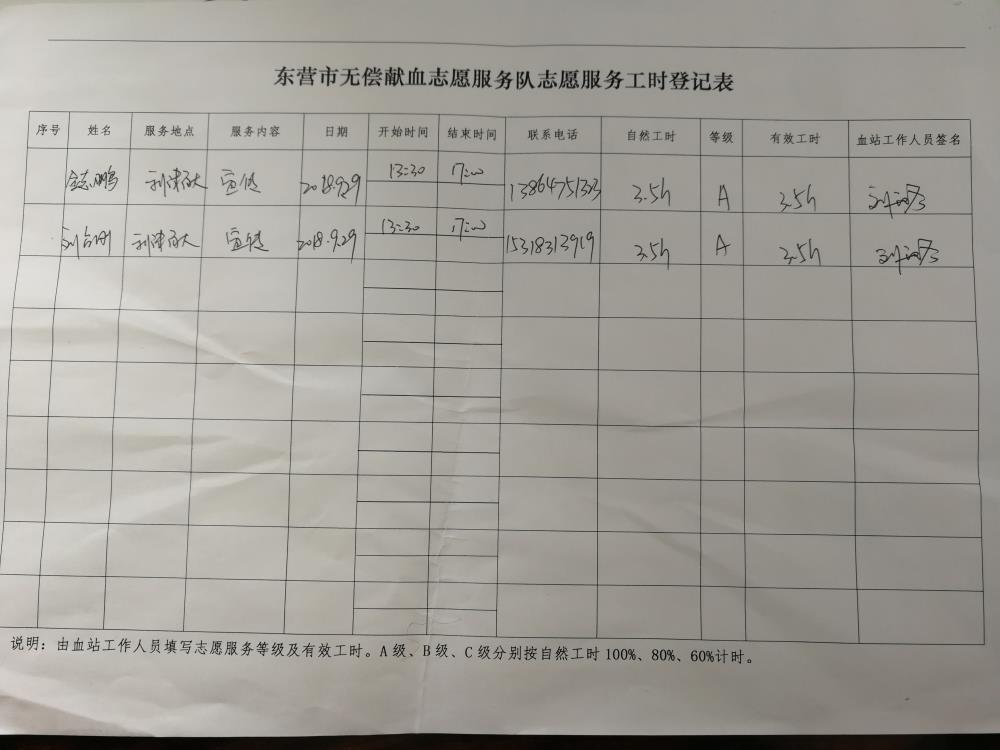 东营市无偿献血志愿服务队志愿服务工时登记表
序号 姓名 服务地点 服务内容 日期 开始时间 结束时间 联系电话 自然工时 等级 有效工时 血站工作人员签名
金志鹏 利津百大 宣传 2018.9.29 13:30 17:00 13864751323 3.5h A 3.5h
利津百大 宣传 2018.9.29 13:30 17:00 15318313919 3.5h A 3.5h
说明：由血站工作人员填写志愿服务等级及有效工时。A级、B级、C级分别按自然工时100%、80%、60%计时。